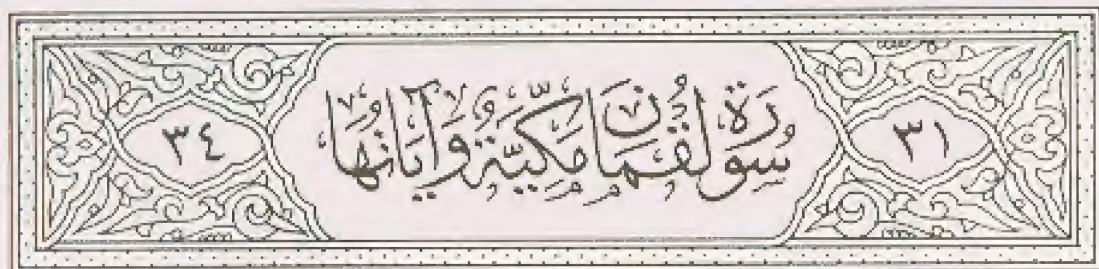 ٣١ سُورَةُ لُقْمَانَ مَكِّيَّةٌ وَآيَاتُهَا ٣٤